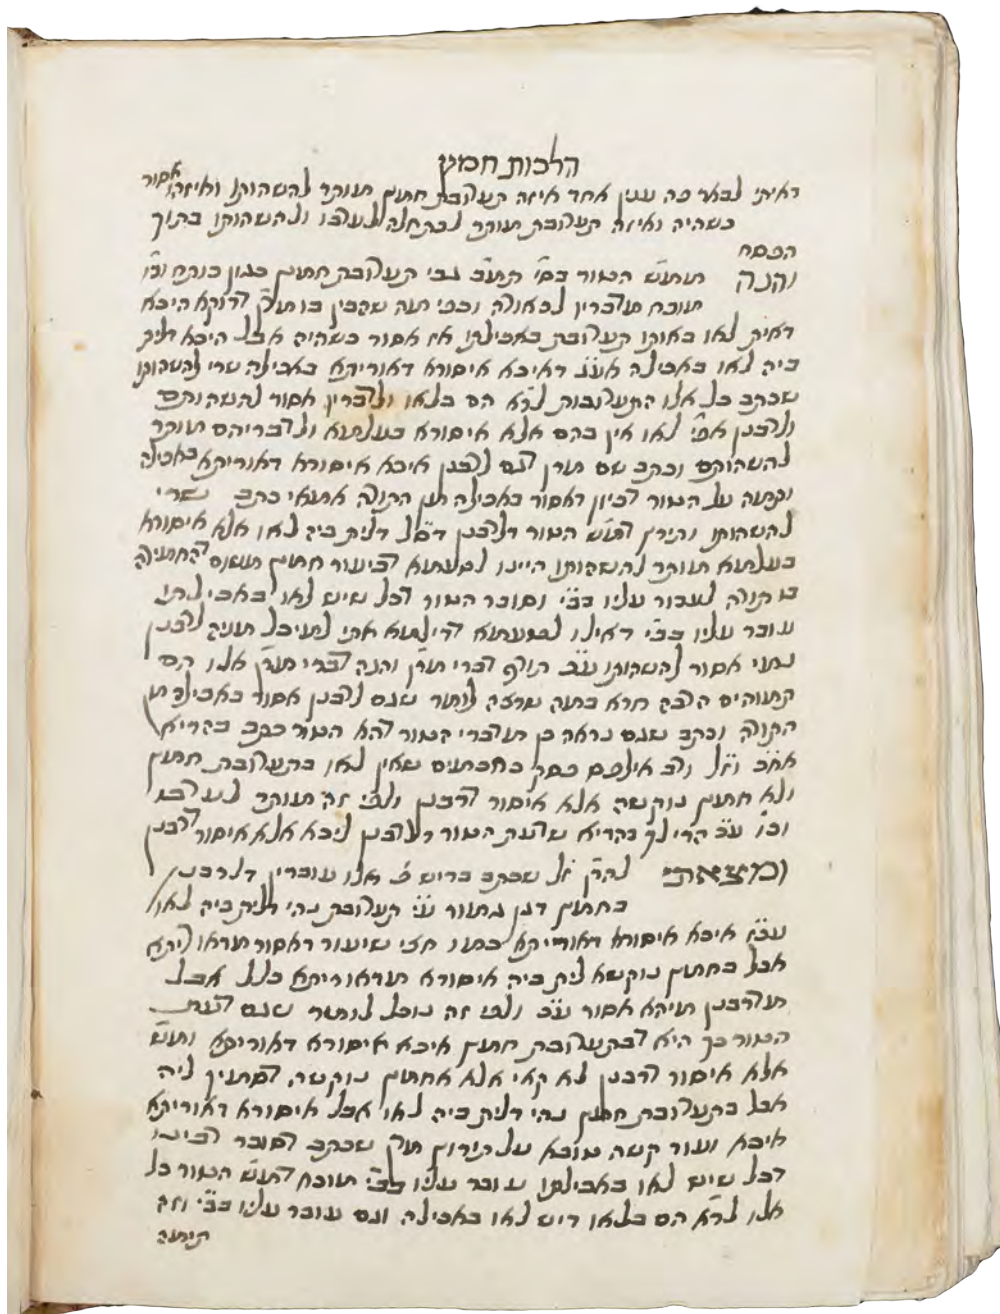 הלכות חמץ
ראיתי לבאר פה ענין אחד איזה תערובת חמץ מותר להשהותו ואיזה אסור
כשהיה ואיזה תערובת מותר לכתחלה לערבו ולהשהותו בתוך
הפסח
והנה מש״ש הטור בסי׳ תמ״ב גבי תערובת חמץ כגון כותח וכו׳
מוכח מדבריו לכאורה ובפי מה שהבין בו מרן דדוקא היכא
דאית לאו באותו תערובת באכילתו אז אסור כשהיה אבל היכא דלית
ביה לאו באכילה אע״ג דאיכא איסורא דאוריתא באכילה שרי להשהותו
שכתב כל אלו התערובות לר״א הם בלאו ולדבריו אסור להשהותם
ולרבנן אפי׳ לאו אין בהם אלא איסורא בעלמא ולדבריהם מותר
להשהותם וכתב שם מרן דגם לרבנן איכא איסורא דאוריתא באכילה
וקמה על הטור דכיון דאסור באכילה מן התורה אמאי כתב שרי
להשהותו ותירץ דמ״ש הטור דלרבנן דס״ל דלית ביה לאו אלא איסורא
בעלמא מותר להשהותו היינו לטעמא דביעור חמץ משום דהחמירה
בו תורה לעבור עליו בב״י וסובר הטור דכל שיש לאו באכילתו
עובר עליו בב״י דאילו לטעמא דדילמא אתי למיכל מניה לרבנן
נמי אסור להשהותו ע״כ תורף דברי מרן והנה דברי מרן אלו הם
תמוהים הרבה חדא במה שרצה לומר שגם לרבנן אסור באכילה מן
התורה וכתב שגם נראה כן מדברי הטור דהא הטור כתב בהדיא
אח״כ וז״ל ורב אלפס פסק כחכמים שאין לאו בתערובת חמץ
ולא חמץ נוקשה אלא איסור דרבנן ולפי זה מותר לערבו
וכו׳ ע״כ הרי לך בהדיא שדעת הטור דלרבנן ליכא אלא איסור דרבנן
ומצאתי להר״ן ז״ל שכתב בריש פ׳ אלו עוברין דלרבנן
בחמץ דגן גמור ע״י תערובת נהי דלית ביה לאו
עכ״ז איכא איסורא דאורייתא כמו חצי שיעור דאסור מדאוריתא
אבל בחמץ נוקשא לית ביה איסורא מדאוריתא כלל אבל
מדרבנן מיהא אסור ע״כ ולפי זה נוכל לומר שגם דעת
הטור כך היא דבתערובת חמץ איכא איסורא דאוריתא ומ״ש
אלא איסור דרבנן לא קאי אלא אחמץ נוקשה דסמיך ליה
אבל בתערובת חמץ נהי דלית ביה לאו אבל איסורא דאוריתא
איכא ועוד קשה טובא על תירוץ מרן שכתב דסובר רבינו
דכל שיש לאו באכילתו עובר עליו בב״י מוכח דמ״ש הטור כל
אלו לר״א הם בלאו דיש לאו באכילה וגם עובר עליו בב״י וזה
תימה